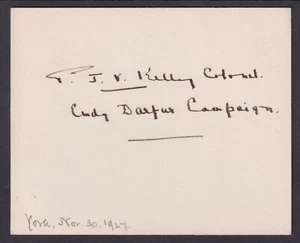 P. J. V. Kelly Colonel.
Comdg Darfur Campaign.
York, Nov. 30. 1927.